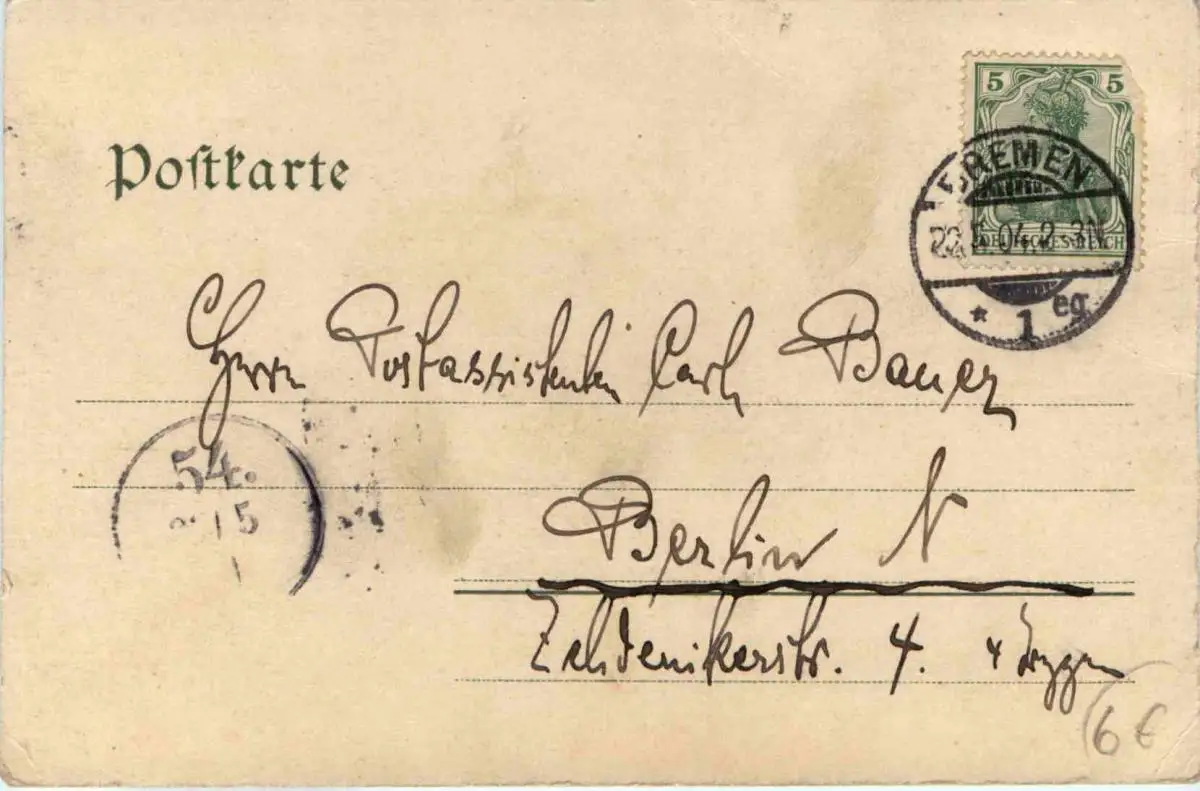 5 5
Postkarte
BREMEN
DEUTSCHES REICH
.04. 2-3N
* 1 eg
Herrn Postassistenten Carl Bauer
54.
5
Berlin N
Zehdenikerstr. 4. 4 Treppen
6 €